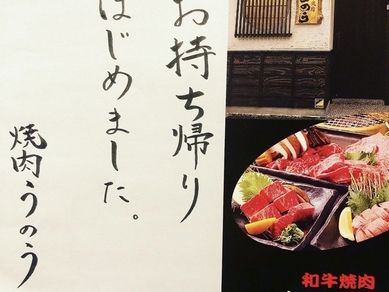 お持ち帰り
はじめました。
焼肉うのう
和牛焼肉